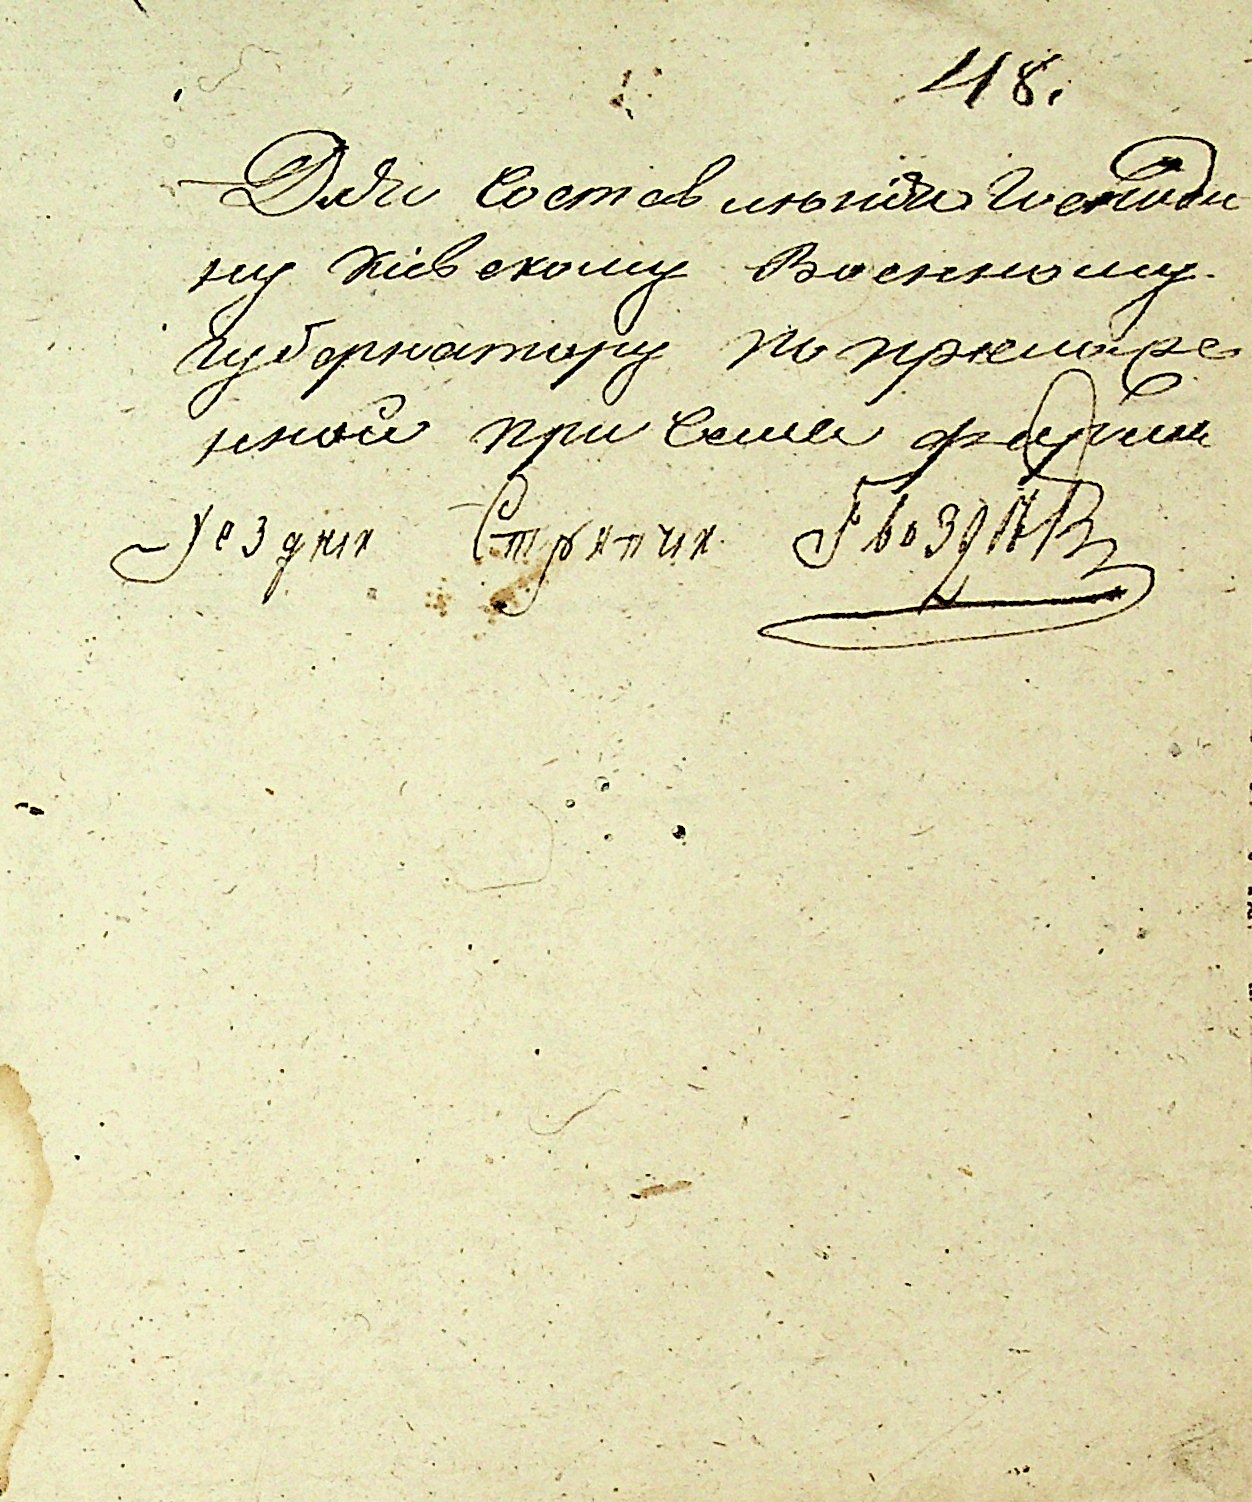 48.
Для Составленія Господи
ну Кіевскому Военному
Губернатору по приложе
нной при Семъ формы
Уездни Стряпчи Гвоздив